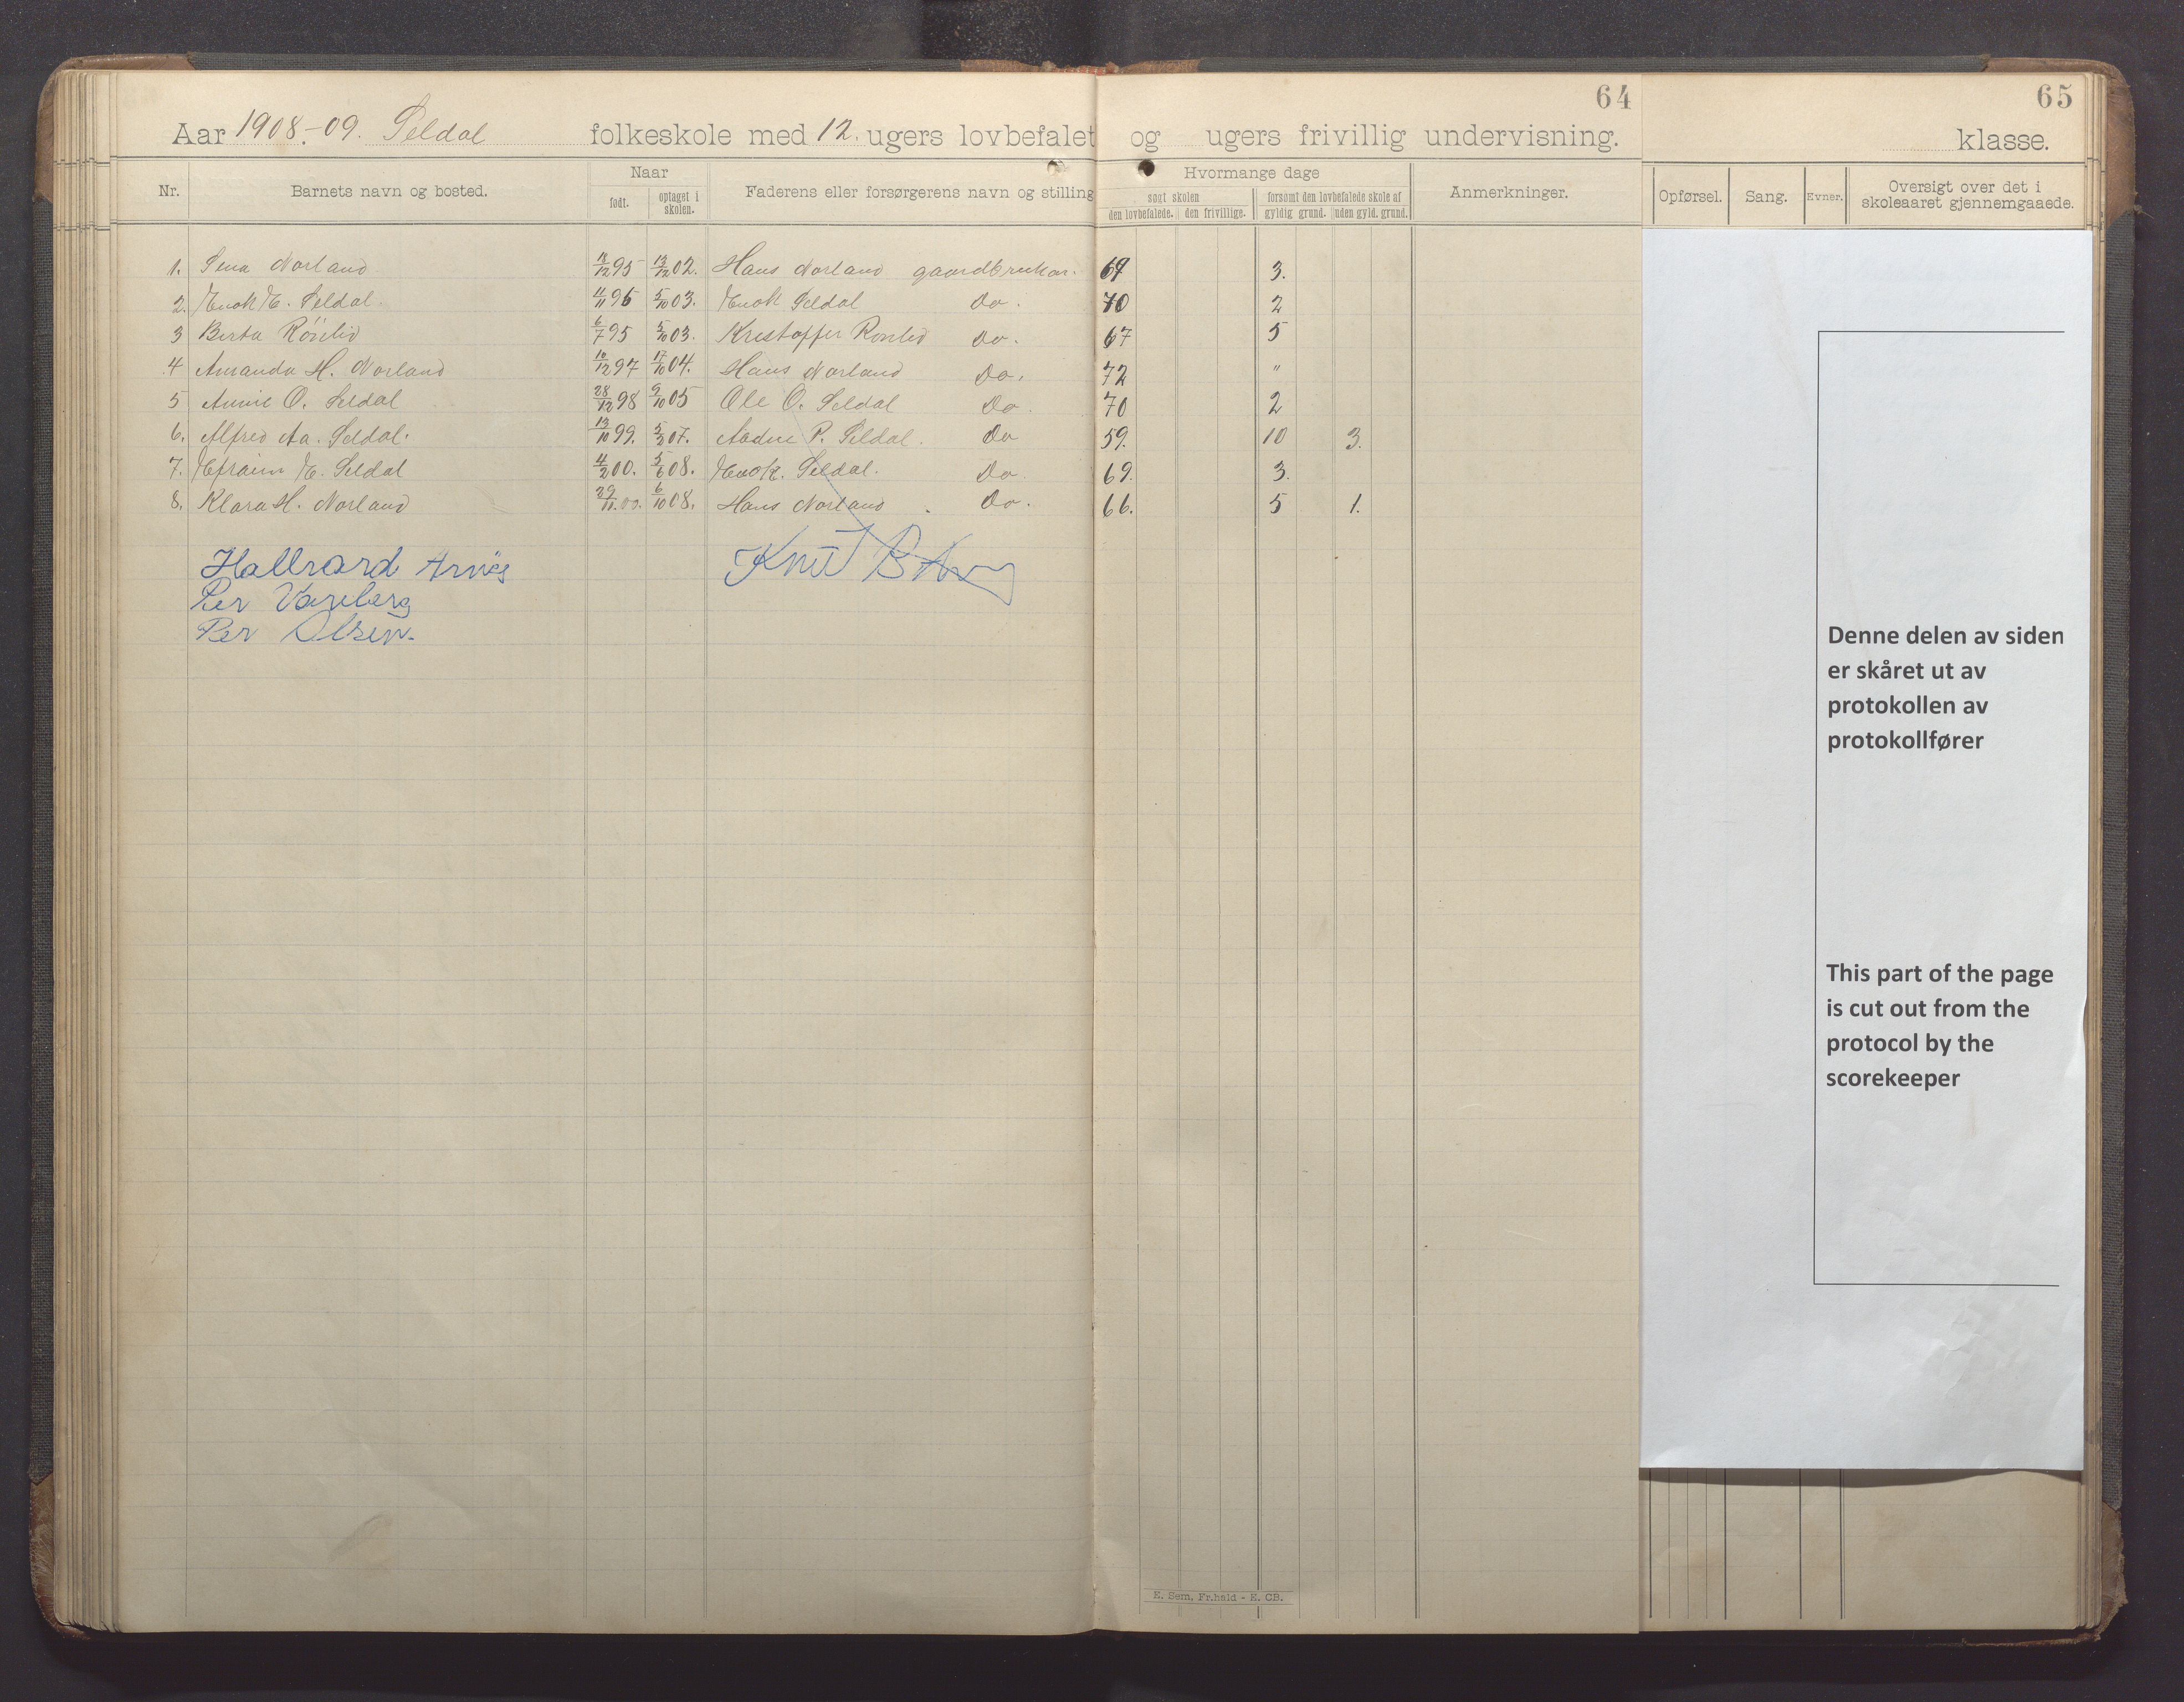 64
65
Aar 1908.-09. Seldal folkeskole med 12. ugers lovbefalet og ugers frivillig undervisning. klasse.
Nr. Barnets navn og bosted. Naar født. optaget i skolen. Faderens eller forsørgerens navn og stilling Hvormange dage søgt skolen den lovbefalede. den frivillige. forsømt den lovbefalede skole af gyldig grund. uden gyld. grund. Anmerkninger. Opførsel. Sang. Evner. Oversigt over det i skoleaaret gjennemgaaede.
1. Sena Norland 95 13/12 02. Hans Norland gaardbruker. 69 3.
2. Enok E. Seldal. 4/11 96 5/10 03. Enok Seldal Do. 70 2
3 Berta Rönlid 6/7 95 5/10 03. Kristoffer Ronlid Do. 67 5
4 Amanda H. Norland 10/12 97 17/10 04. Hans Norland Do. 72 "
5 Annie O. Seldal 28/12 98 9/10 05 Ole O. Seldal Do. 70 2
6. Alfred Aa. Seldal. 13/10 99. 07. Aadne P. Seldal. Do 59. 10 3.
7. Efraim E. Seldal 4/2 00. 5/6 08. Enok. Seldal. Do 69. 3.
8. Klara H. Norland 29/11.00. 6/10 08. Hans Norland. Do. 66. 5 1.
Hallvard
Per Vareberg
Per Olsen.
Knut
Denne delen av siden
er skåret ut av
protokollen av
protokollfører
This part of the page
is cut out from the
protocol by the
scorekeeper
E. Sem, Fr.hald - E. CB.